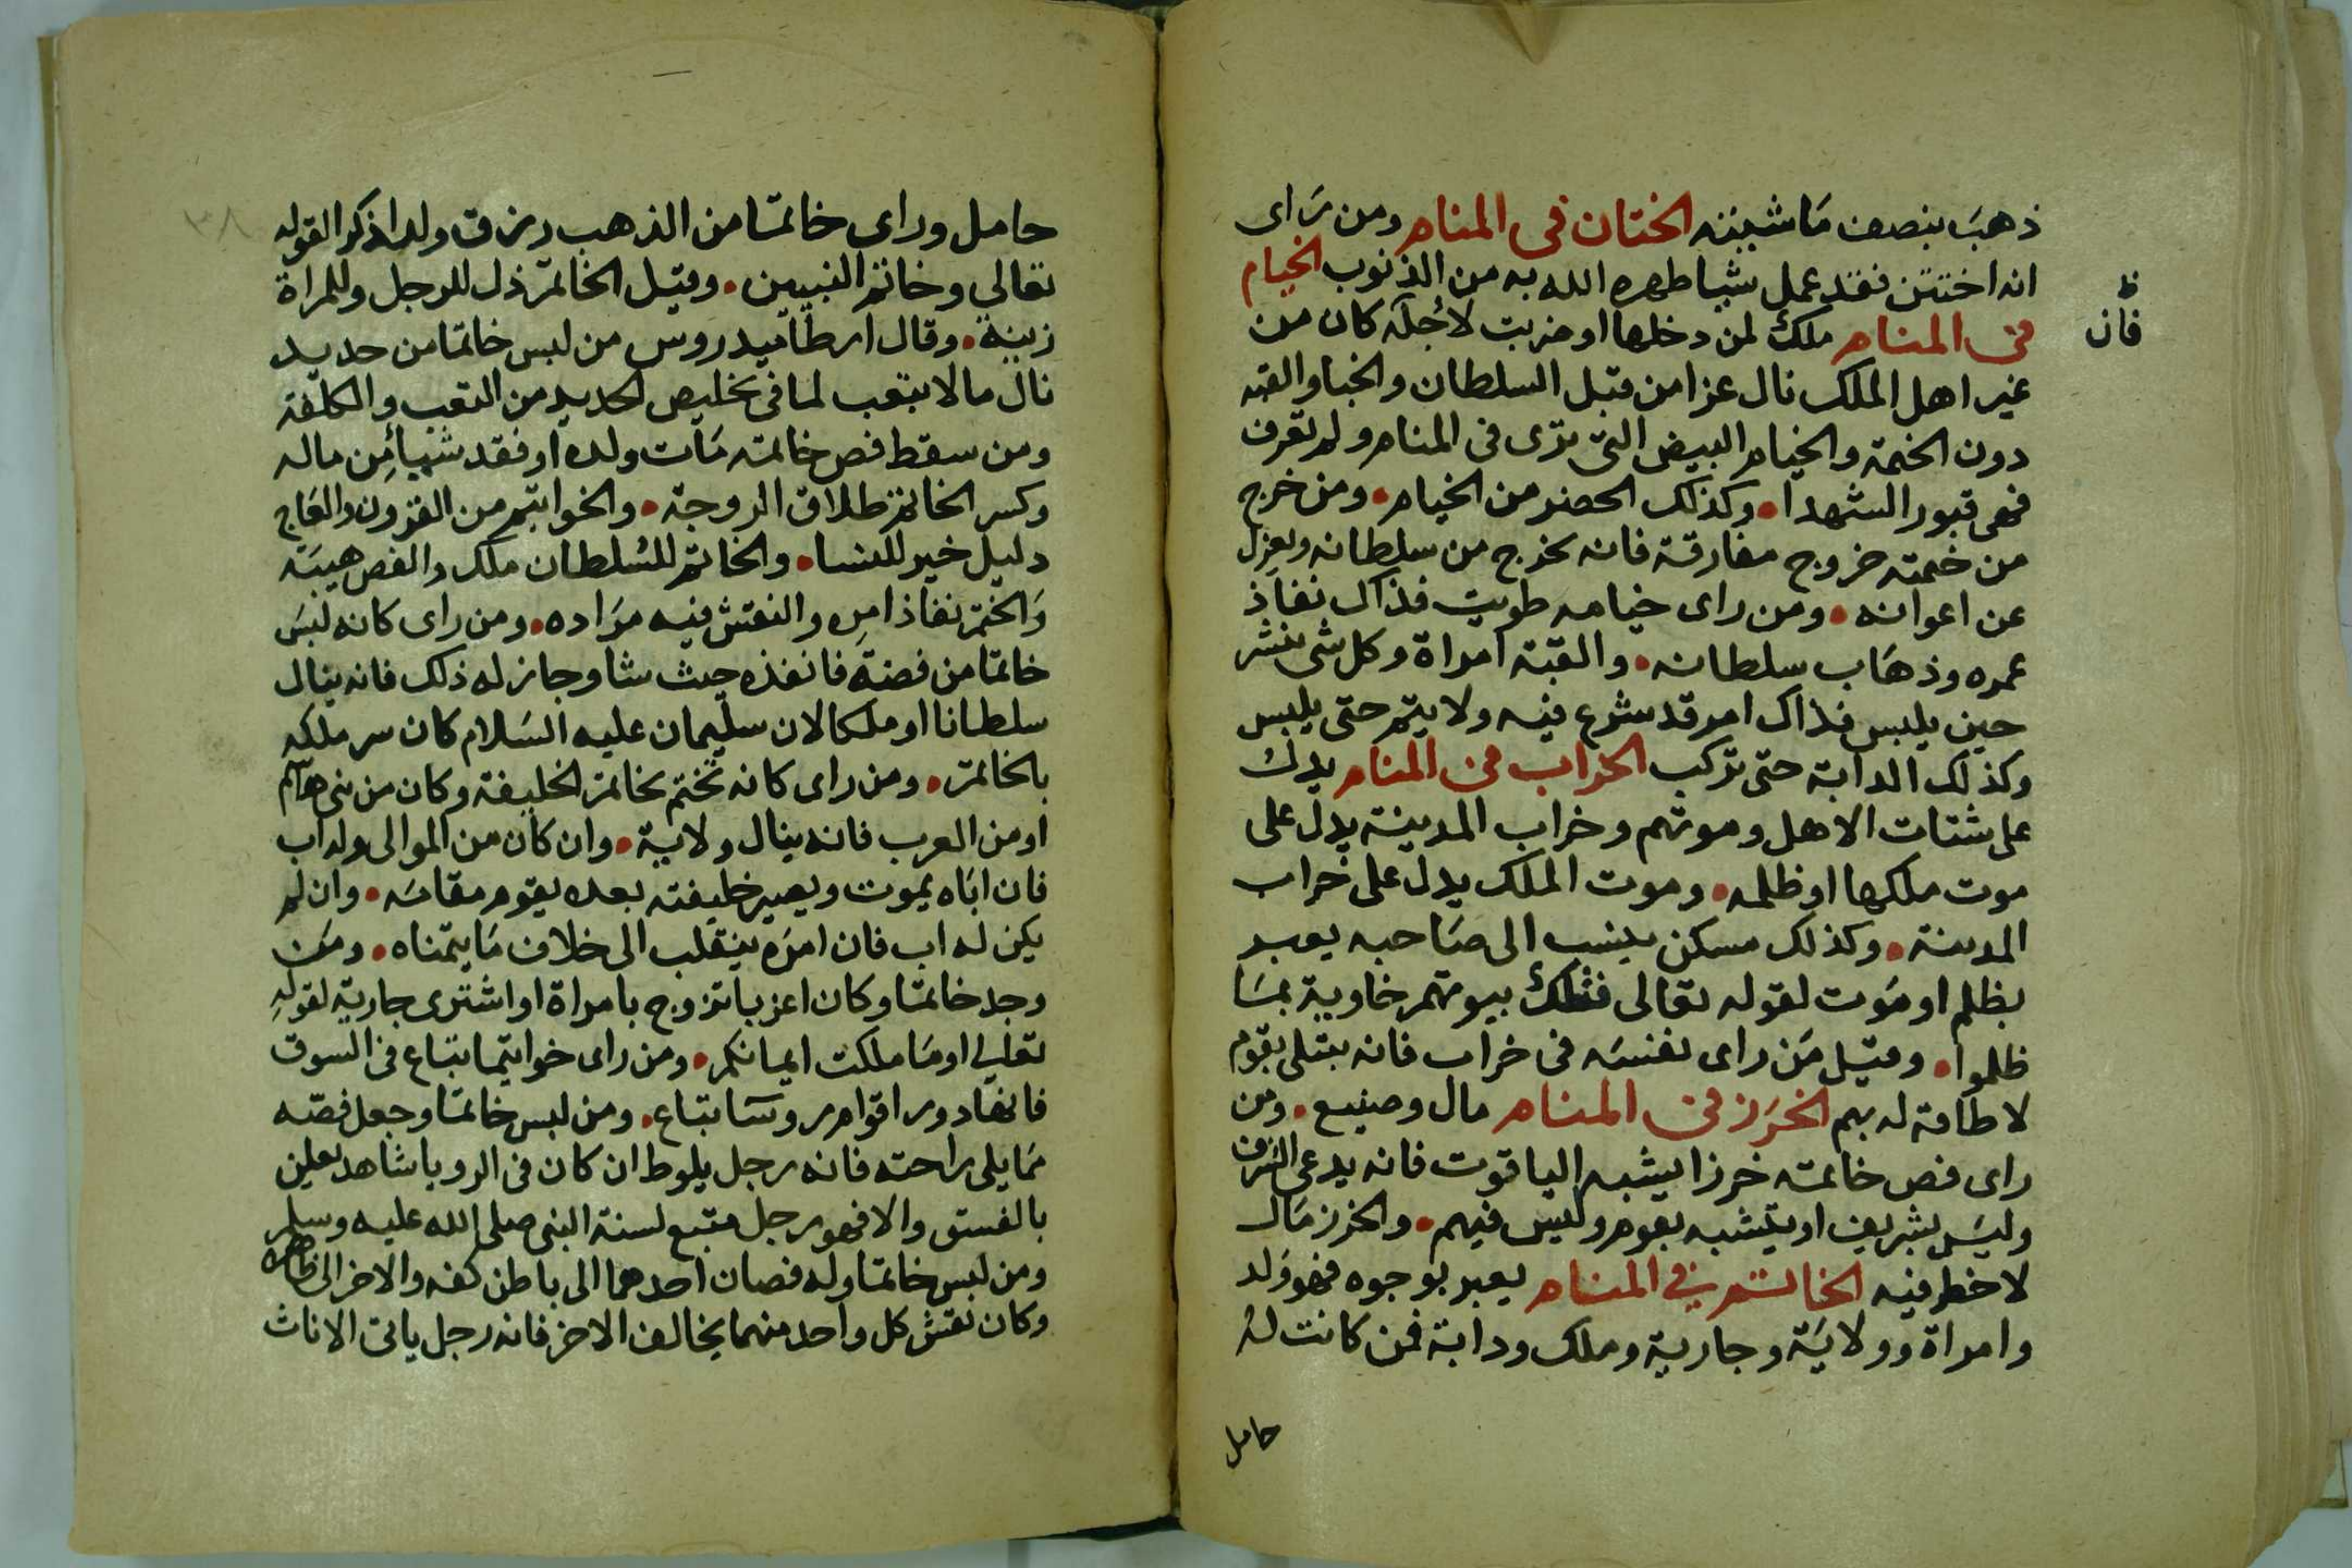 ذهب بنصف ماشيته الختان فى المنام ومن راى
انه اختتن فقد عمل شيا طهره الله به من الذنوب الخيام
فى المنام ملك لمن دخلها او ضربت لأجله كان من
ظ
فان
غير اهل الملك نال عزا من قبل السلطان والخبا والقبه
دون الخيمة والخيام البيض التى ترى فى المنام ولم تعرف
فهى قبور الشهدا وكذلك الحضر من الخيام ومن خرج
من خيمته خروج مفارقة فانه يخرج من سلطانه ويعزل
عن اعوانه ومن راى خيامه طويت فذاك نفاذ
عمره وذهاب سلطانه والقبة امراة وكل شى ينشر
حين يلبس فذاك امر قد شرع فيه ولا يتم حتى يلبس
وكذلك الدابة حتى تركب الخراب فى المنام يدل
على شتات الاهل وموتهم وخراب المدينة يدل على
موت ملكها او ظلمه وموت الملك يدل على خراب
المدينة وكذلك مسكن ينسب الى صاحبه يعبر
بظلم او موت لقوله تعالى فتلك بيوتهم خاوية بما
ظلموا وقيل من راى نفسه فى خراب فانه يبتلى بقوم
لا طاقة له بهم الخرز فى المنام مال وضيع ومن
راى فص خاتمه خرزا يشبه الياقوت فانه يدعى الشرف
وليس بشريف او يتشبه بقوم وليس فيهم والخرز مال
لا خطر فيه الخاتم فى المنام يعبر بوجوه فهو ولد
وامراة وولاية وجارية وملك ودابة فمن كانت له
حامل
٣٨
حامل وراى خاتما من الذهب رزق ولدا ذكرا لقوله
تعالي وخاتم النبيين وقيل الخاتم ذل للرجل وللمراة
زينة وقال ارطاميدروس من لبس خاتما من حديد
نال مالا بتعب لما فى تخليص الحديد من التعب والكلفة
ومن سقط فص خاتمه مات ولده او فقد شيا من ماله
وكسر الخاتم طلاق الزوجة والخواتيم من القرون والعاج
دليل خير للنسا والخاتم للسلطان ملك والفص هيبة
والختم نفاذ امره والنقش فيه مراده ومن راى كانه لبس
خاتما من فضة فانفذه حيث شا وجاز له ذلك فانه ينال
سلطانا او ملكا لان سليمان عليه السلام كان سر ملكه
بالخاتم ومن راى كانه تختم بخاتم الخليفة وكان من بنى هاشم
او من العرب فانه ينال ولاية وان كان من الموالى وله اب
فان اباه يموت ويصير خليفته بعده يقوم مقامه وان لم
يكن له اب فان امره ينقلب الى خلاف ما يتمناه ومن
وجد خاتما وكان اعزبا تزوج بامراة او اشترى جارية لقوله
تعالي او ما ملكت ايمانكم ومن راى خواتيما تباع فى السوق
فانها دور اقوام روسا تباع ومن لبس خاتما وجعل فصه
مما يلى راحته فانه رجل يلوط ان كان فى الرويا شاهد يعلن
بالفسق والا فهو رجل متبع لسنة النبى صلى الله عليه وسلم
ومن لبس خاتما وله فصان احدهما الى باطن كفه والاخر الى ظاهره
وكان نقش كل واحد منهما يخالف الاخر فانه رجل ياتى الاناث